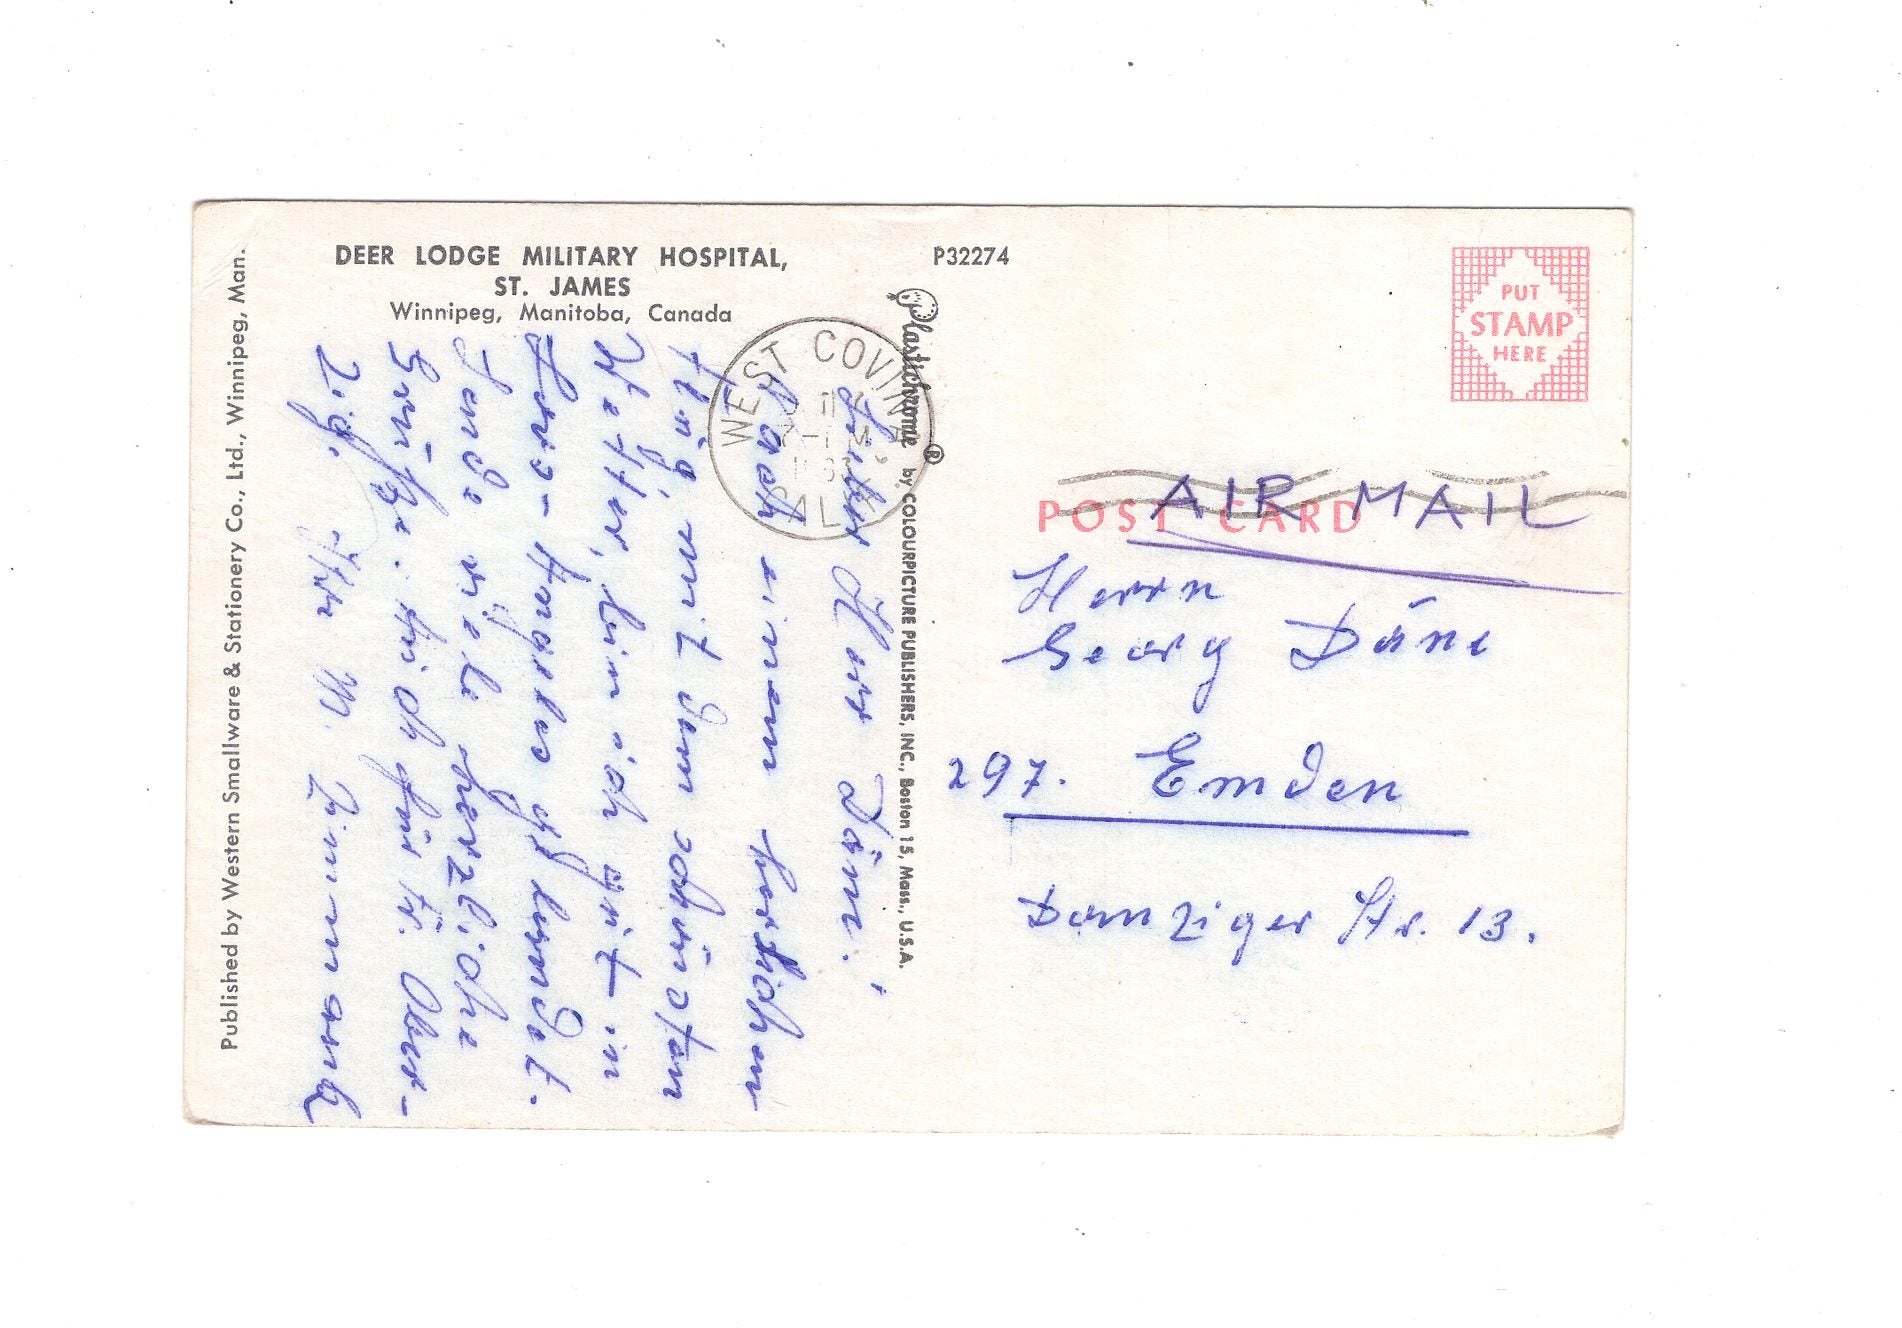 DEER LODGE MILITARY HOSPITAL,
ST. JAMES
Winnipeg, Manitoba, Canada
P32274
Published by Western Smallware & Stationery Co., Ltd., Winnipeg, Man.
Plastichrome ® by COLOURPICTURE PUBLISHERS, INC., Boston 15, Mass., U.S.A.
PUT
STAMP
HERE
WEST COVINA
CALIF
POST CARD
AIR MAIL
Herrn
Georg Däne
297. Emden
Danziger Str. 13.
Lieber Herr Däne!
Nach einem herrlichen
Flug, mit dem schönsten
Wetter, bin ich gut in
Los-Angeles gelandet.
Sende viele herzliche
Grüße. Auch für Fr. Ober-
Ihr N. Zimmank